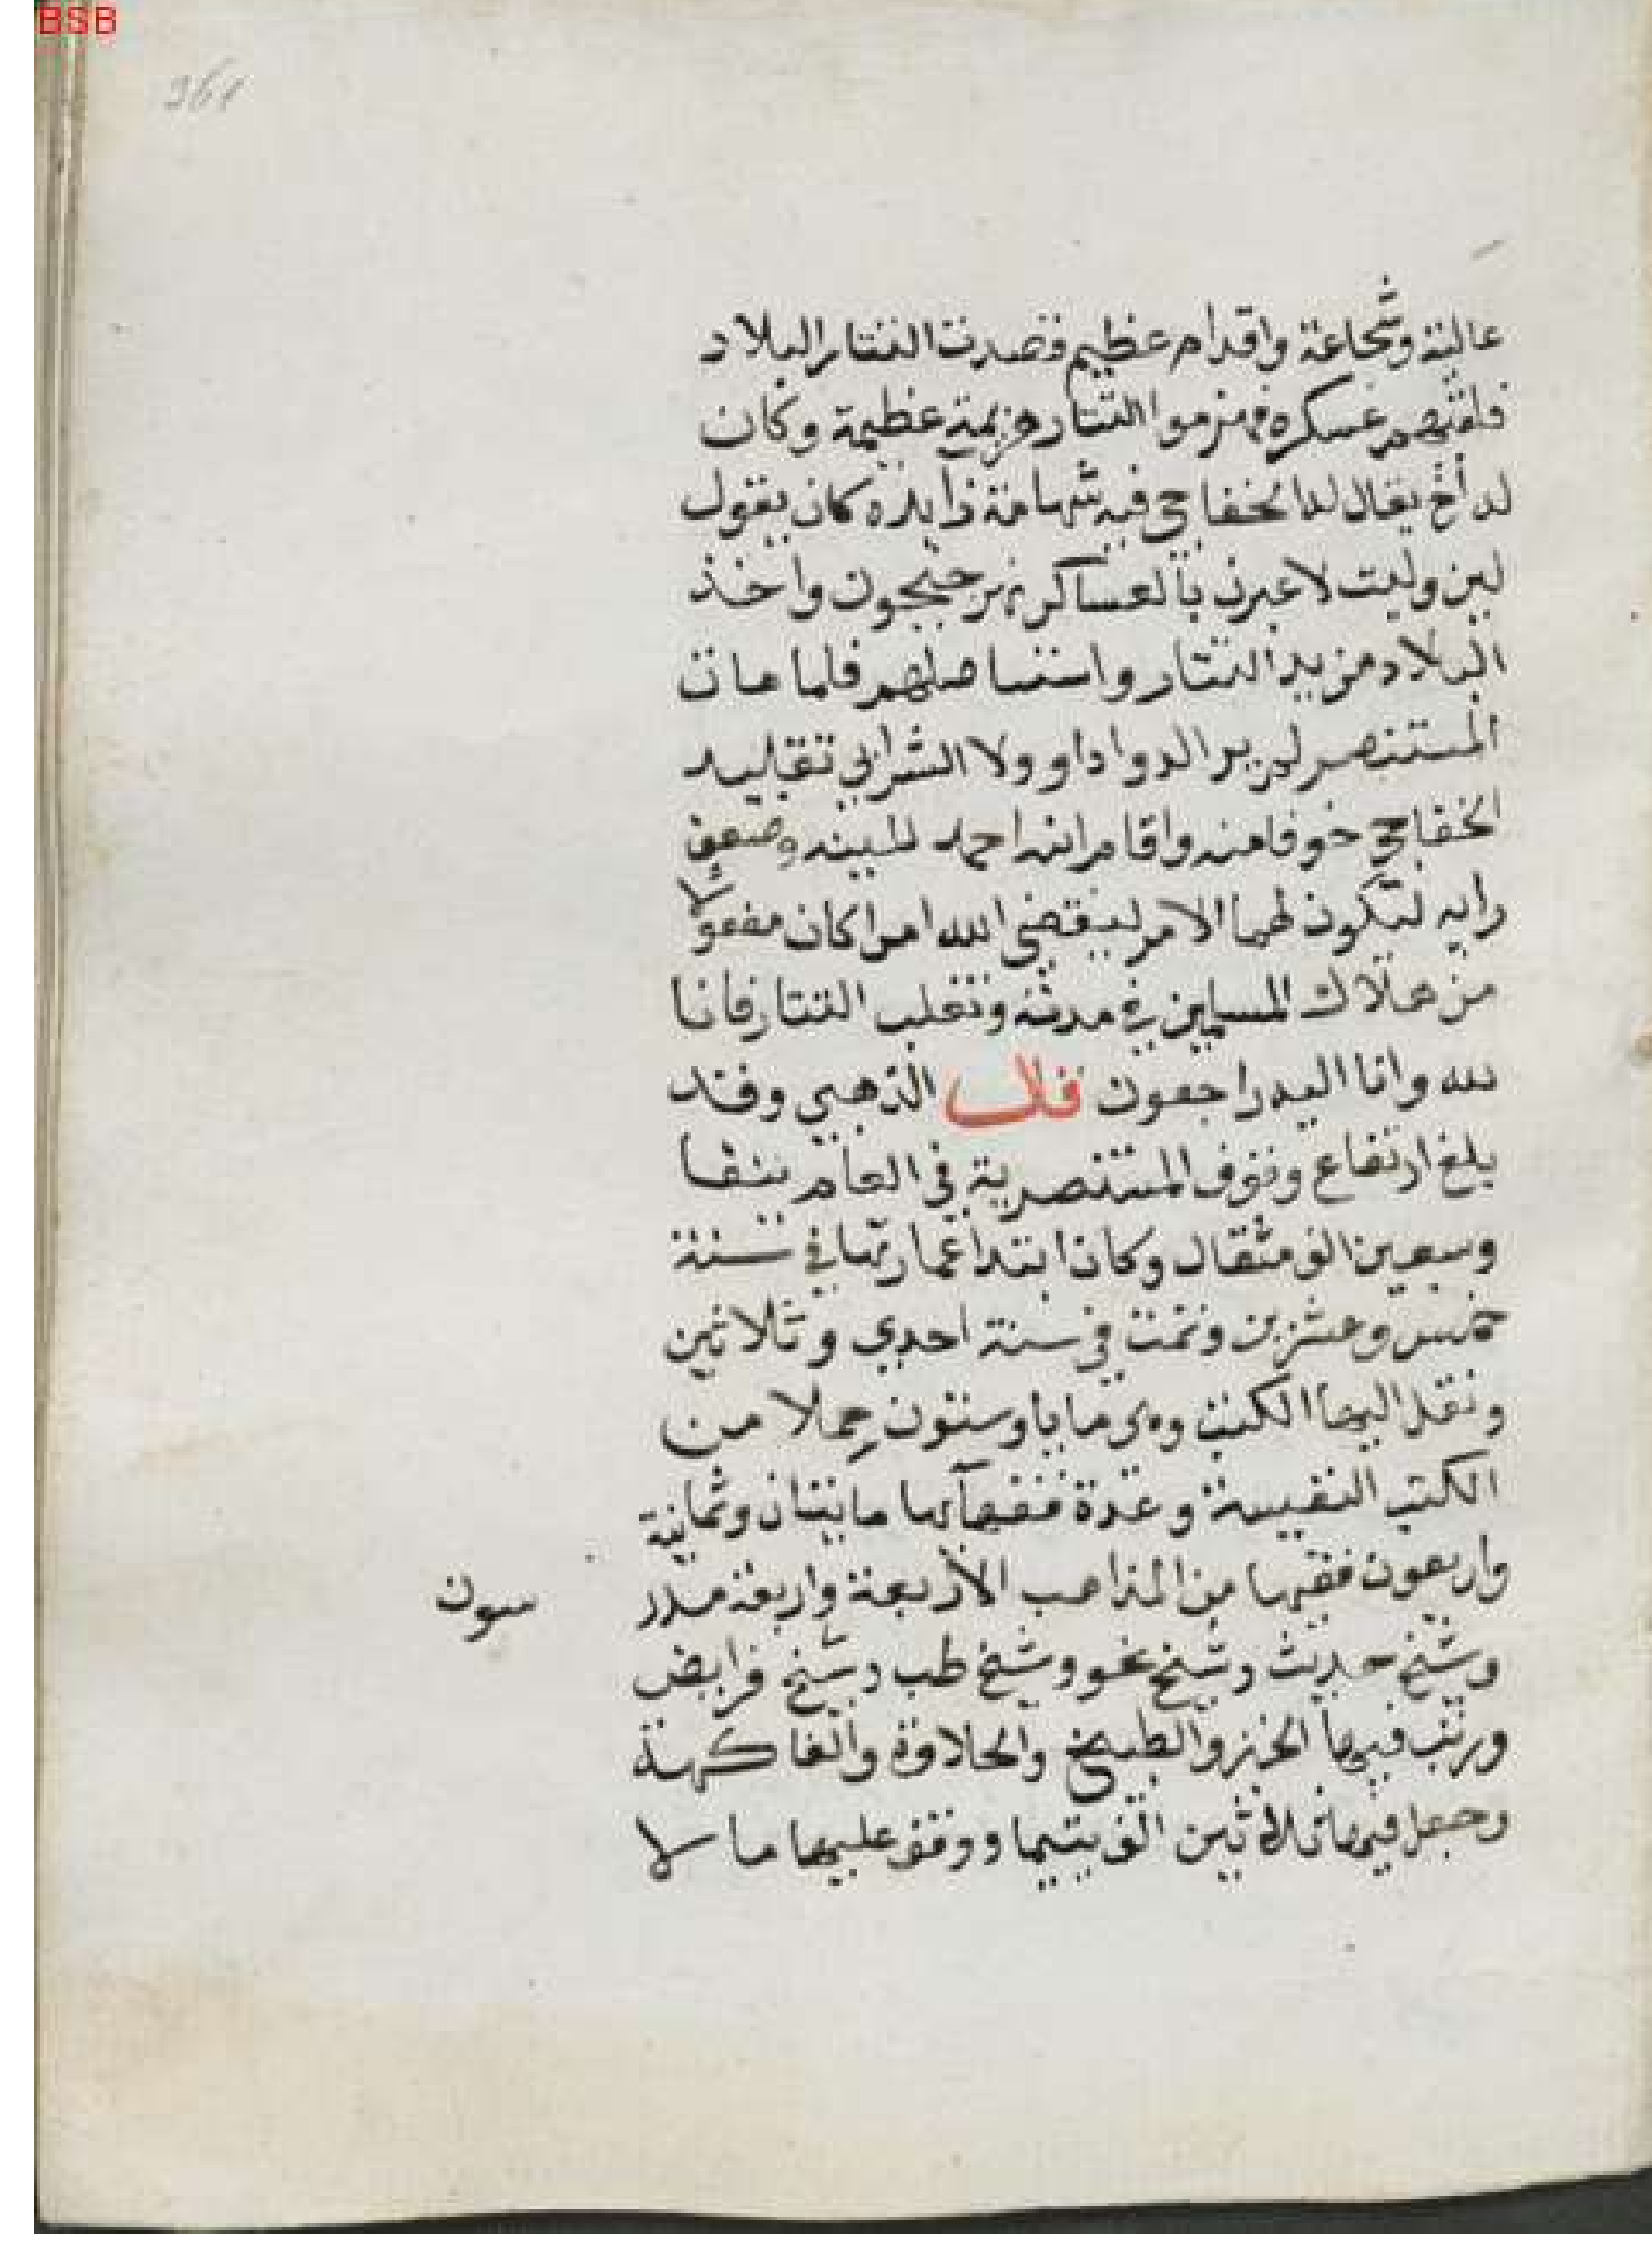 BSB
361
عالية وشجاعة واقدام عظيم فقصدت التتار البلاد
فلقيهم عسكره فهزموا التتار هزيمة عظيمة وكان
له أخ يقال له الخفاجي فيه شهامة زايدة كان يقول
لين وليت لاعبرن بالعساكر نهر جيحون واخذ
البلاد من يد التتار واستاصلهم فلما مات
المستنصر لم ير الدوادار ولا الشرابي تقليد
الخفاجي خوفا منه واقام ابنه احمد للينه وضعف
رايه ليكون لهما الامر ليقضي الله امرا كان مفعولا
من هلاك المسلمين في مدته وتغلب التتار فانا
لله وانا اليه راجعون قال الذهبي وقد
بلغ ارتفاع وقوف المستنصرية في العام نيفا
وسبعين الف مثقال وكان ابتدا عمارتها في سنة
خمس وعشرين وتمت في سنة احدي وثلاثين
ونقل اليها الكتب وهي ماية وستون حملا من
الكتب النفيسة وعدة فقهآيها مايتان وثمانية
واربعون فقيها من المذاهب الاربعة واربعة مدر
سون
وشيخ حديث وشيخ نحو وشيخ طب وشيخ فرايض
ورتب فيها الخبز والطبيخ والحلاوة والفاكهة
وجعل فيها ثلاثين الف يتيما ووقف عليها ما لا